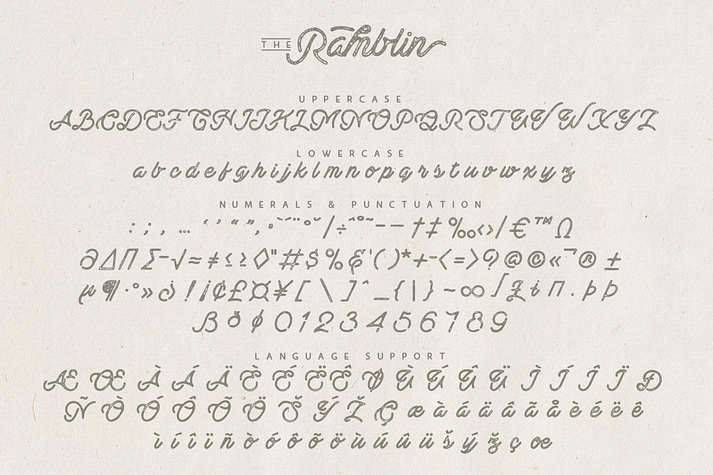 THE Ramblin
UPPERCASE
ABCDEFGHIJKLMNOPQRSTUVWXYZ
LOWERCASE
abcdefghijklmnopqrstuvwxyz
NUMERALS & PUNCTUATION
: ; , … ‘ ’ “ ” „ ° ˘ ¯ ¨ ° ˇ / ÷ ˆ ° ˜ – — † ‡ ‰ ‹ › / € ™ Ω
∂ ∆ Π Σ − √ ≈ ≠ ≤ ≥ ◊ " # $ % & ' ( ) * + - < = > ? @ © « ¬ ® ±
µ ¶ · ° » ¿ ! ¡ ¢ £ ¤ ¥ [ \ ] ^ _ { | } ~ ∞ ∫ π . Þ þ
ß ð ø 0 1 2 3 4 5 6 7 8 9
LANGUAGE SUPPORT
Æ Œ À Á Ä È É Ë Ê Ø Ù Ú Û Ü Ì Í Î Ï Ð
Ñ Ò Ó Ô Õ Ö Š Ý Ž Ç æ à á ä â ã å è é ë ê
ì í î ï ñ ò ó ô õ ö ù ú û ü š ý ž ç œ